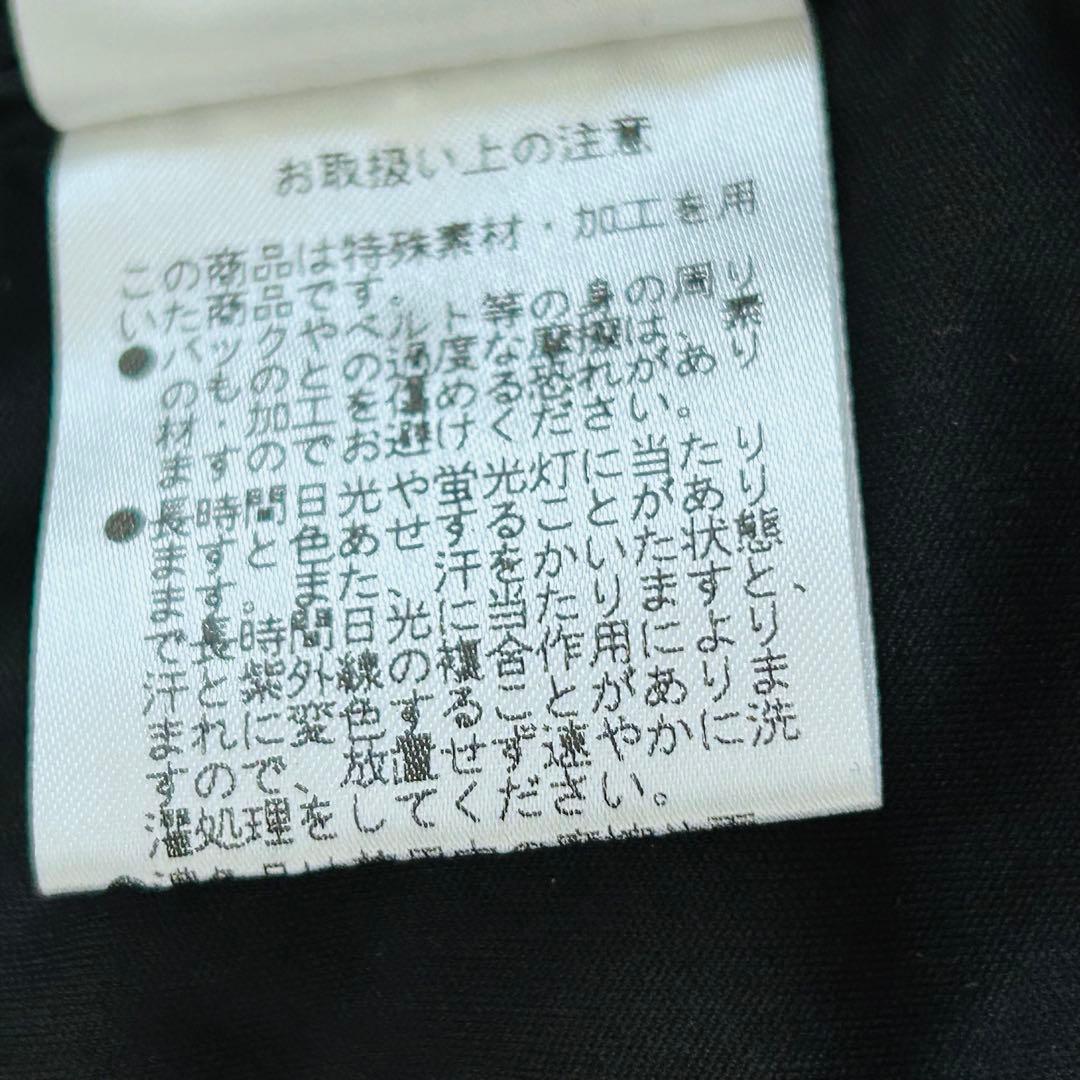 お取扱い上の注意
この商品は特殊素材・加工を用
いた商品です。
●バックやベルト等の身の周り
のものとの過度な摩擦は、素
材・加工を傷める恐れがあり
ますのでお避けください。
●長時間日光や蛍光灯に当たり
ますと色あせすることがあり
ます。また、汗をかいた状態
で長時間日光に当たりますと、
汗と紫外線の複合作用により
ますれに変色することがありま
すので、放置せず速やかに洗
濯処理をしてください。